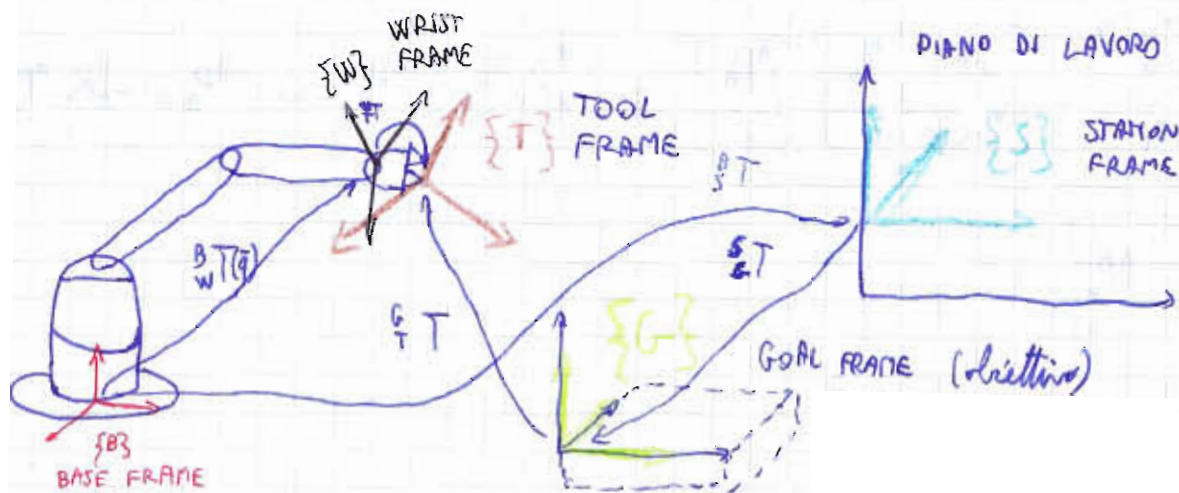 WRIST
FRAME
{W}
TOOL
FRAME
{T}
PIANO DI LAVORO
{S}
STATION
FRAME
B
W T(q̄)
G
T T
S T
S
G T
{G}
GOAL FRAME (obiettivo)
{B}
BASE FRAME